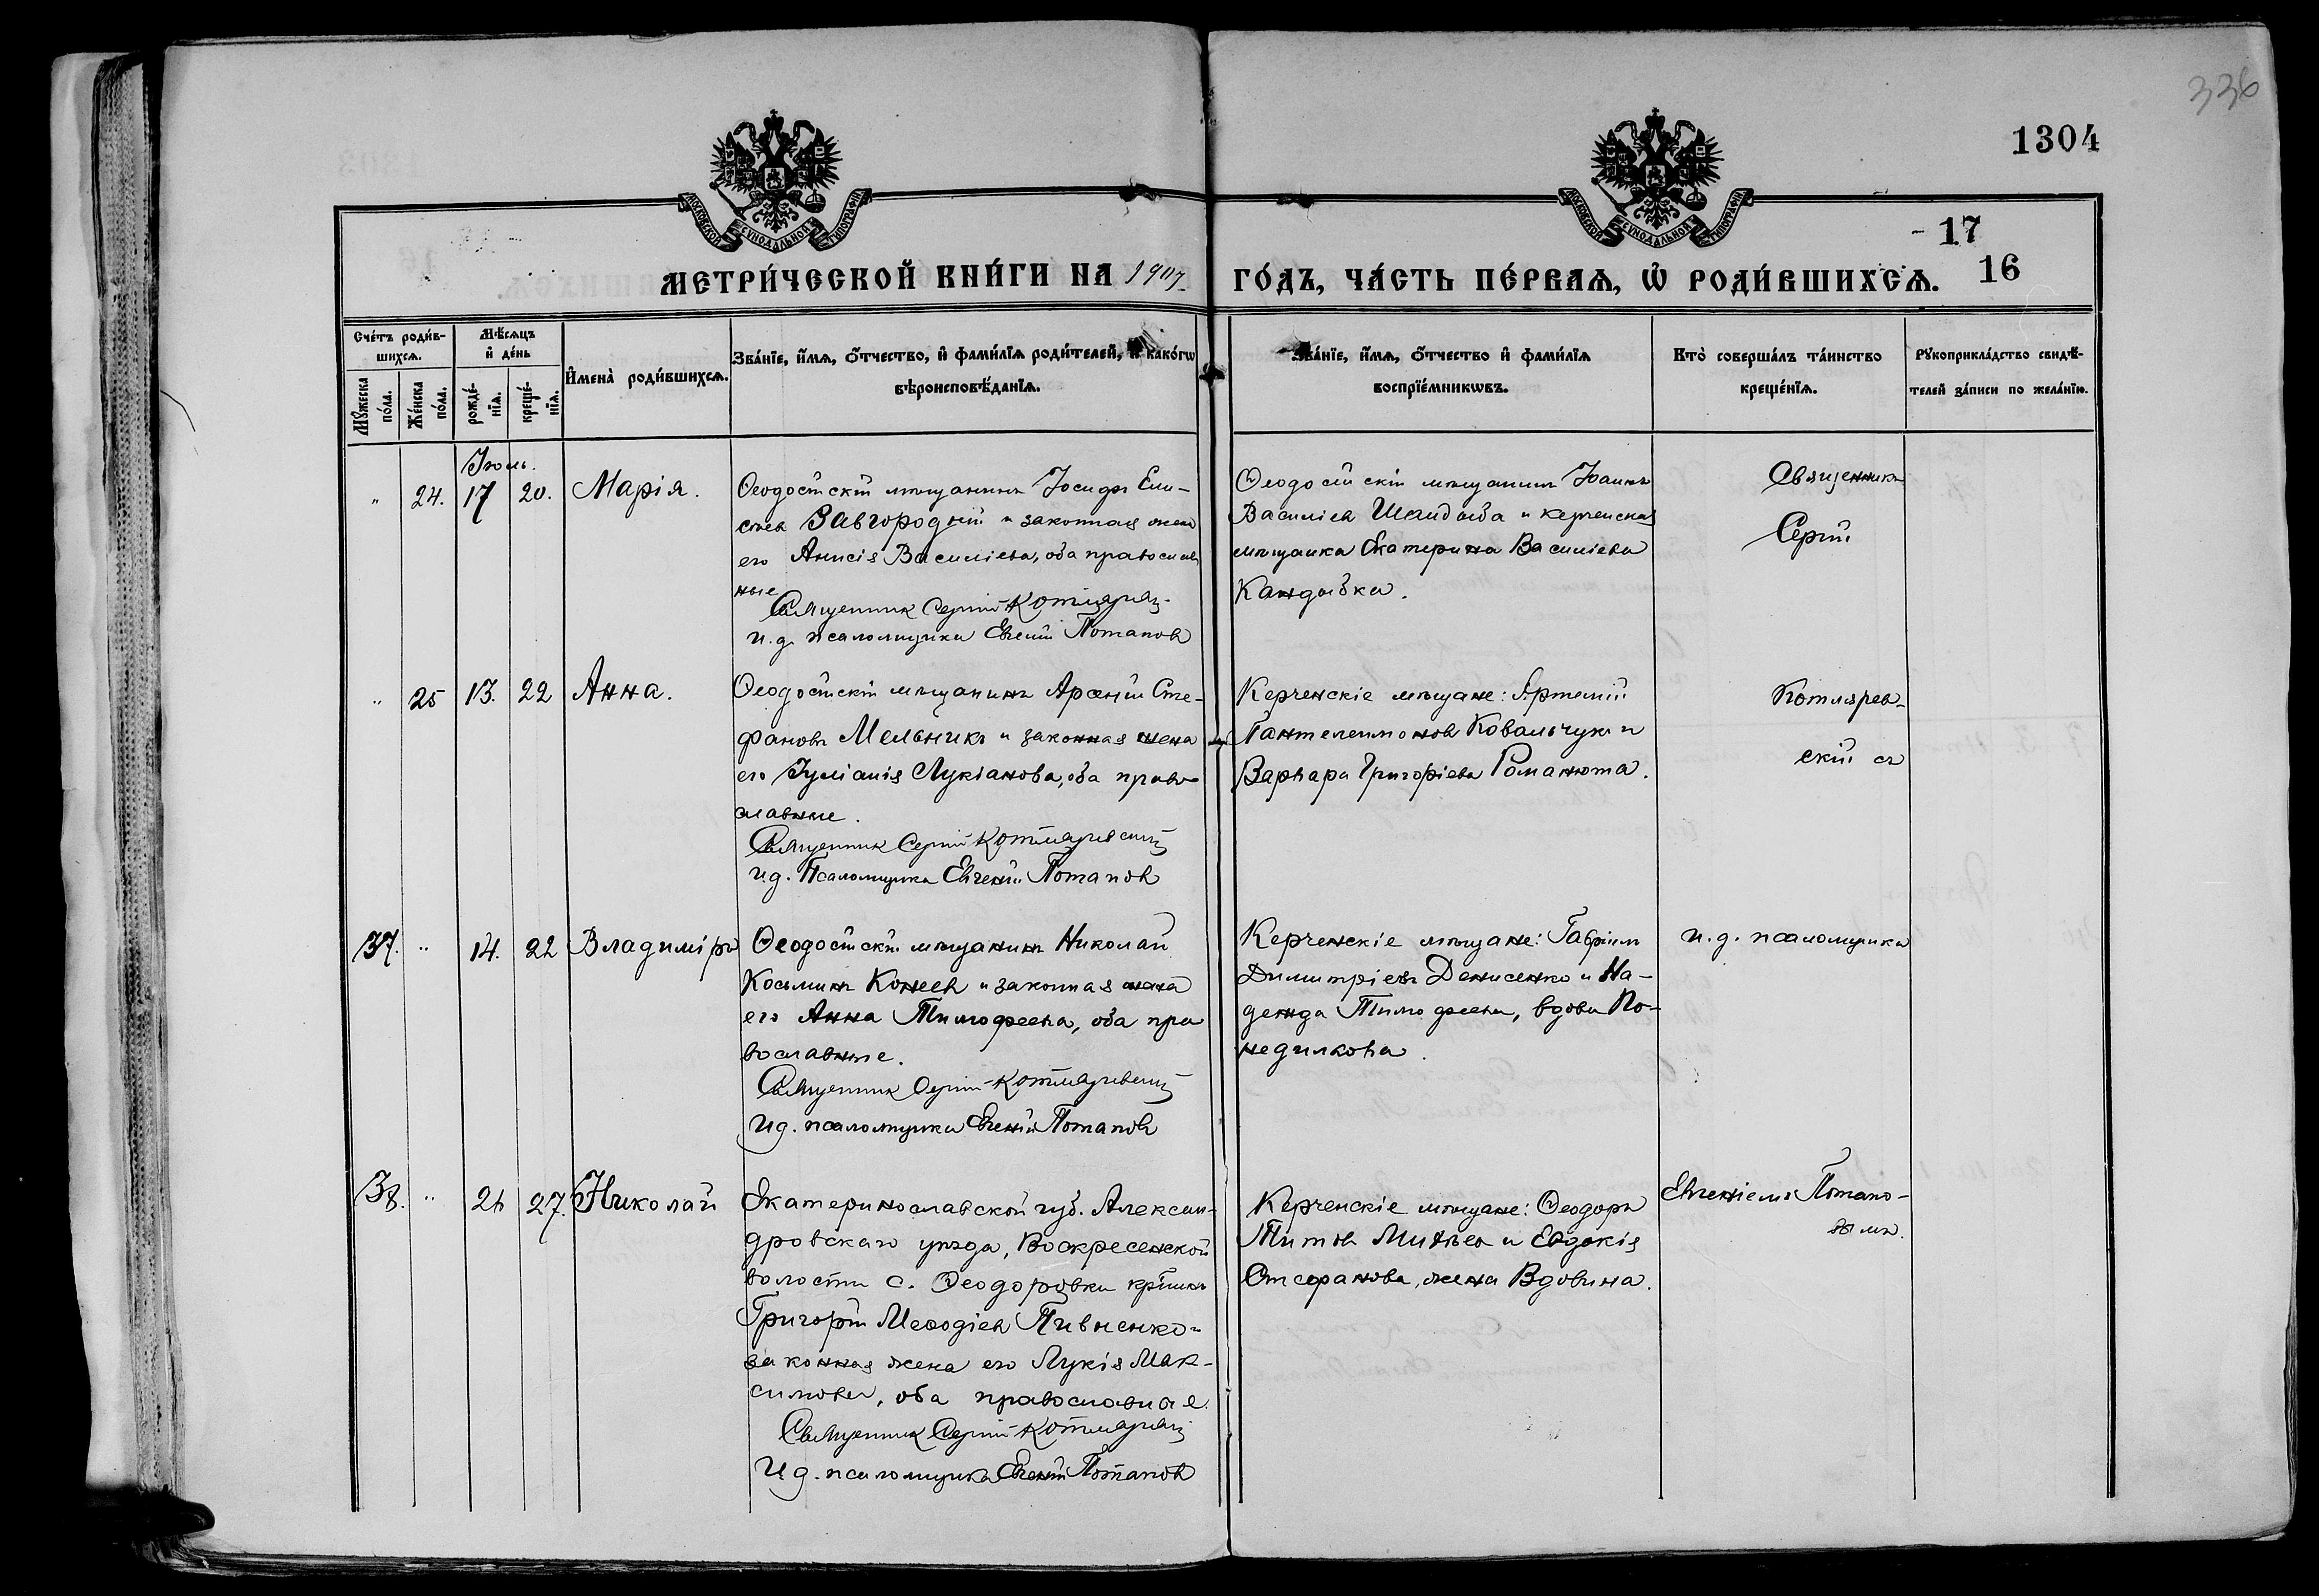 336
1304
МОСКОВСКОЙ СѴНОДАЛЬНОЙ ТИПОГРАФІИ
МОСКОВСКОЙ СѴНОДАЛЬНОЙ ТИПОГРАФІИ
- 17
МЕТРИ́ЧЕСКОЙ КНИ́ГИ НА 1907 ГО́ДЪ, ЧА́СТЬ ПЕ́РВАѦ, Ѡ҆ РОДИ́ВШИХСѦ. 16
Сче́тъ роди́в-
шихсѧ.
Мѣ́сѧцъ
и҆ де́нь
И҆мена̀ роди́вшихсѧ.
Зва́нїе, и҆́мѧ, ѻ҆́тчество, и҆ фами́лїѧ роди́телей, и҆ како́гѡ
вѣроисповѣ́данїѧ.
Мꙋ́жеска по́ла.
Же́нска по́ла.
рожде́-
нїѧ.
креще́-
нїѧ.
Зва́нїе, и҆́мѧ, ѻ҆́тчество и҆ фами́лїѧ
воспрїе́мникѡвъ.
Кто̀ соверша́лъ та́инство
креще́нїѧ.
Рꙋкоприкла́дство свидѣ́-
телей за́писи по жела́нїю.
Іюль.
" 24. 17 20. Марія.
Ѳеодосійскій мѣщанинъ Іосифъ Ели-
сеевъ Завгородній и законная жена
его Анисія Василіева, оба православ
ные
Священник Сергій Котляревск
и. д. псаломщика Евгеній Потаповъ
Ѳеодосійскій мѣщанинъ Іоаннъ
Василіевъ Шандыба и керченская
мѣщанка Екатерина Василіева
Кандыбка.
Священникъ
Сергій
" 25 13. 22 Анна.
Ѳеодосійскій мѣщанинъ Арсеній Сте-
фановъ Мельникъ и законная жена
его Іуліанія Лукіанова, оба право-
славные.
Священник Сергій Котляревскій
и.д. Псаломщика Евгеній Потаповъ
Керченскіе мѣщане: Артемій
Пантелеимоновъ Ковальчукъ и
Варвара Григоріева Романюта.
Котлярев-
скій съ
37. " 14. 22 Владиміръ
Ѳеодосійскій мѣщанинъ Николай
Косьминъ Конеевъ и законная жена
его Анна Тимофеева, оба пра
вославные.
Священник Сергій Котляревскій
И д. псаломщика Евгеній Потаповъ
Керченскіе мѣщане: Гавріилъ
Димитріевъ Денисенко и На-
дежда Тимофеева, вдова По-
недилкова.
и. д. псаломщика
38. " 27. Николай
Екатеринославской губ. Алексан-
дровскаго уѣзда, Воскресенской
волости с. Ѳеодоровки кр-нинъ
Григорій Меѳодіевъ Пивненко-
законная жена его Лукія Мак-
симова, оба православные.
Священник Сергій Котляревскій
И д. псаломщика Евгеній Потаповъ
Керченскіе мѣщане: Ѳеодоръ
Титовъ и Евдокія
Стефанова, жена Вдовина.
Евгеніемъ Потапо-
вымъ.